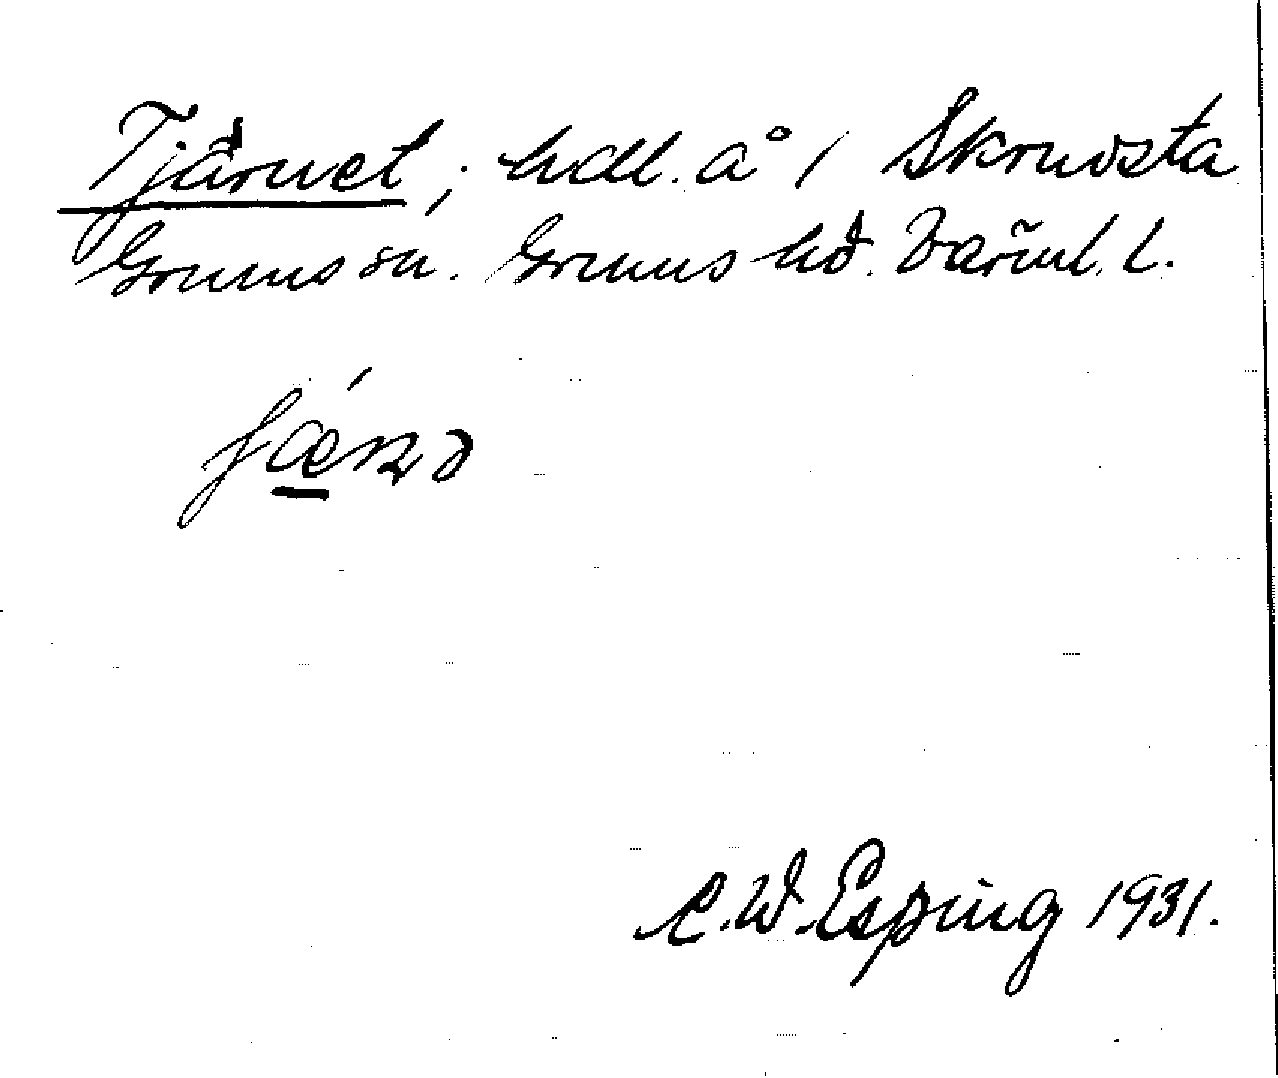 Tjärnet; hdl. å / Skruvsta
Grums sn. Grums hd. Värml. l.
C.W. Esping 1931.